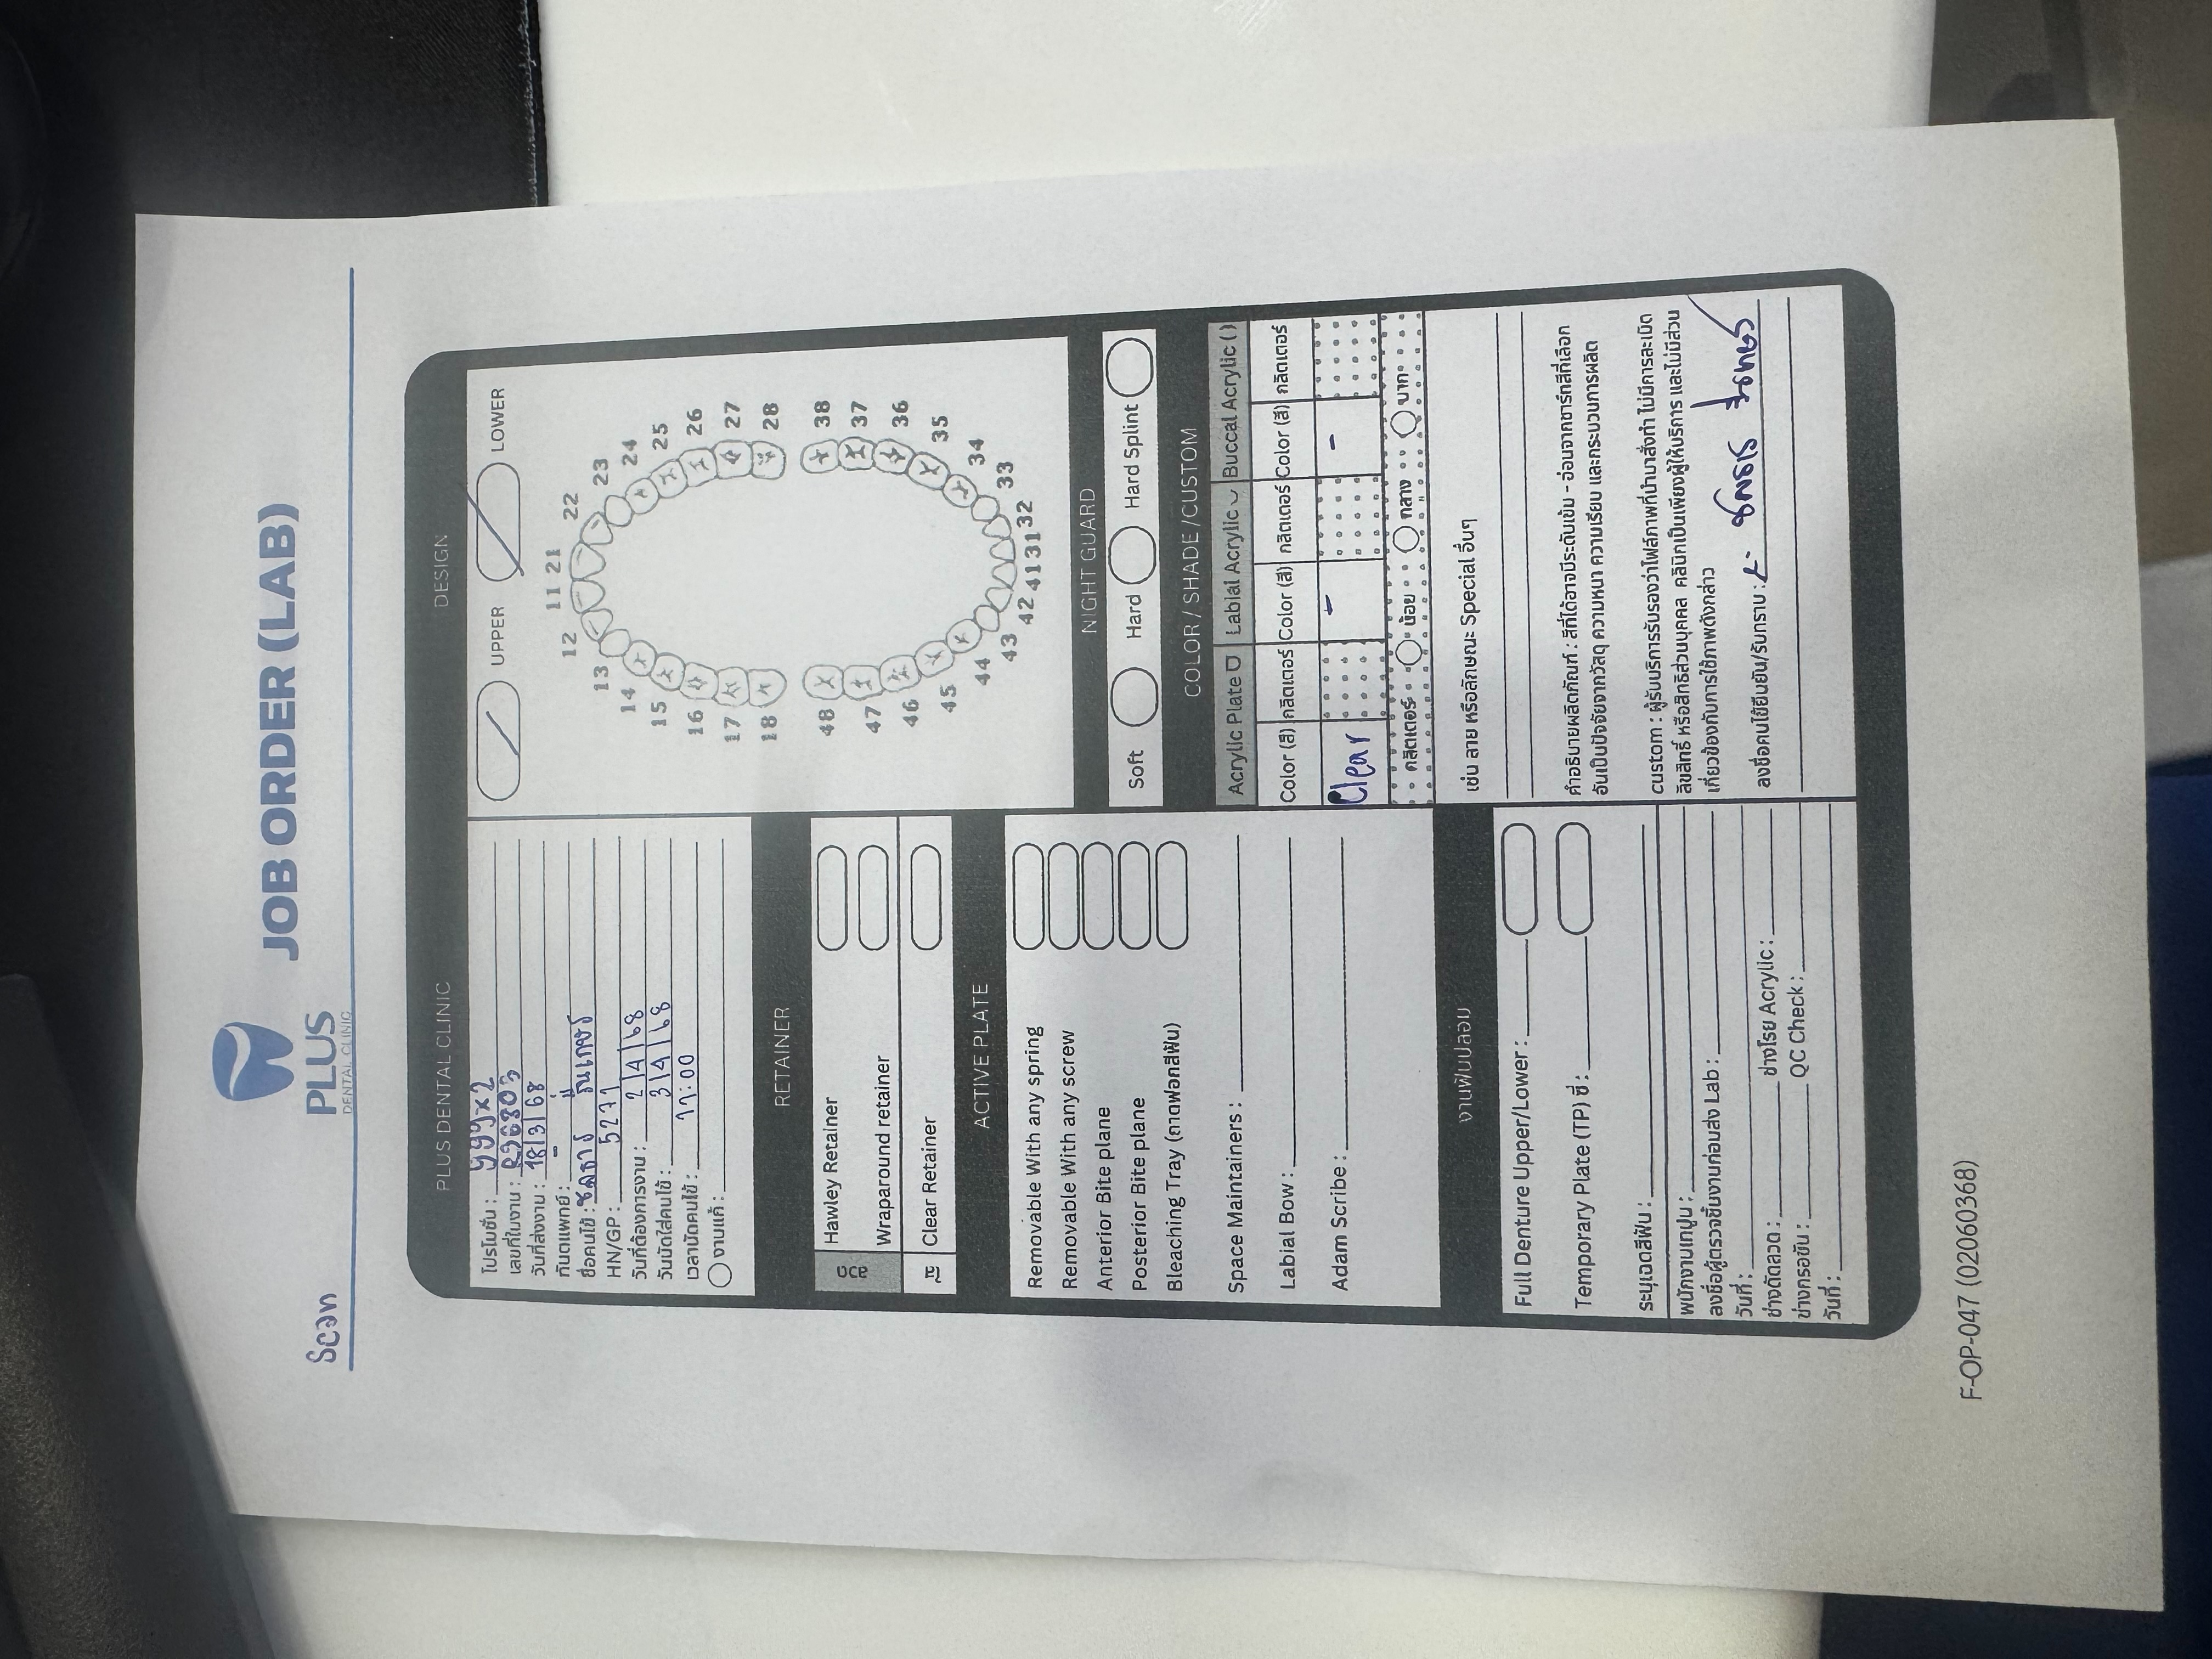 Scan
PLUS
DENTAL CLINIC
JOB ORDER (LAB)
PLUS DENTAL CLINIC
โปรโมชั่น : 999x2
เลขที่ใบงาน : R36303
วันที่ส่งงาน : 18/3/68
ทันตแพทย์ : -
ชื่อคนไข้ : ชลธาร
HN/GP : 5271
วันที่ต้องการงาน : 2/4/68
วันนัดใส่คนไข้ : 3/4/68
เวลานัดคนไข้ : 17:00
งานแก้ :
RETAINER
ลวด
Hawley Retainer
Wraparound retainer
ใส
Clear Retainer
ACTIVE PLATE
Removable With any spring
Removable With any screw
Anterior Bite plane
Posterior Bite plane
Bleaching Tray (ถาดฟอกสีฟัน)
Space Maintainers :
Labial Bow :
Adam Scribe :
งานฟันปลอม
Full Denture Upper/Lower :
Temporary Plate (TP) ซี่ :
ระบุเฉดสีฟัน :
พนักงานเทปูน :
ลงชื่อผู้ตรวจชิ้นงานก่อนส่ง Lab :
วันที่ :
ช่างดัดลวด : ช่างโรย Acrylic :
ช่างกรอขัน : QC Check :
วันที่ :
DESIGN
UPPER LOWER
11 21
12 22
13 23
14 24
15 25
16 26
17 27
18 28
48 38
47 37
46 36
45 35
44 34
43 33
42 41 31 32
NIGHT GUARD
Soft Hard Hard Splint
COLOR / SHADE /CUSTOM
Acrylic Plate Labial Acrylic Buccal Acrylic ( )
Color (สี) กลิตเตอร์ Color (สี) กลิตเตอร์ Color (สี) กลิตเตอร์
Clear - -
กลิตเตอร์ น้อย กลาง มาก
เช่น ลาย หรือลักษณะ Special อื่นๆ
คำอธิบายผลิตภัณฑ์ : สีที่ได้อาจมีระดับเข้ม - อ่อนจากชาร์ทสีที่เลือก
อันเป็นปัจจัยจากวัสดุ ความหนา ความเรียบ และกระบวนการผลิต
custom : ผู้รับบริการรับรองว่าไฟล์ภาพที่นำมาสั่งทำ ไม่มีการละเมิด
ลิขสิทธิ์ หรือสิทธิส่วนบุคคล คลินิกเป็นเพียงผู้ให้บริการ และไม่มีส่วน
เกี่ยวข้องกับการใช้ภาพดังกล่าว
ลงชื่อคนไข้ยืนยัน/รับทราบ : ชลธาร
F-OP-047 (02060368)